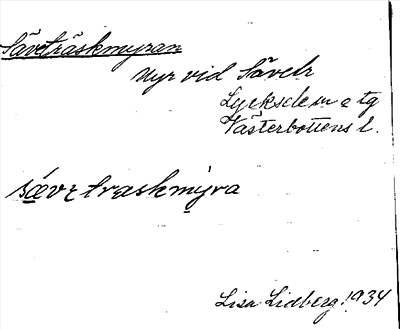 Sävträskmyran
Myr vid Sävtr
Lycksele m o tg
Västerbottens l.
sævtraskmýra
Lisa Lidberg 1934